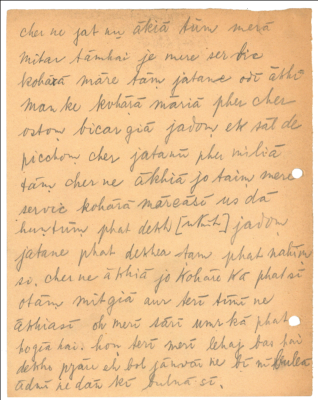 cher ne jat nụ ākiā tūm merā
mitar tāmhai je mere ser vic
kohāṛā māre tām jatane odī ākhī
man ke kohāṛā māriā pher cher
oston bicar giā jadom ek sāl de
picchon cher jatanū pher miliā
tām cher ne ākhiā jo taim mere
servic kohāṛā mārcāsī us dā
hun tūm phat dekh jadom
jatane phat dekhea tam phat nahīm
so. cher ne ākhiā jo kohāṛe kā phat sī
otām mit giā aur terī tīnī ne
ākhiasī oh merī sārī umr kā phat
hogiā hai. hon terī merī bas hai
dekho pyāre eh bol jānvar ne bī nī bulea
admī ne dām kī bulnā sī.